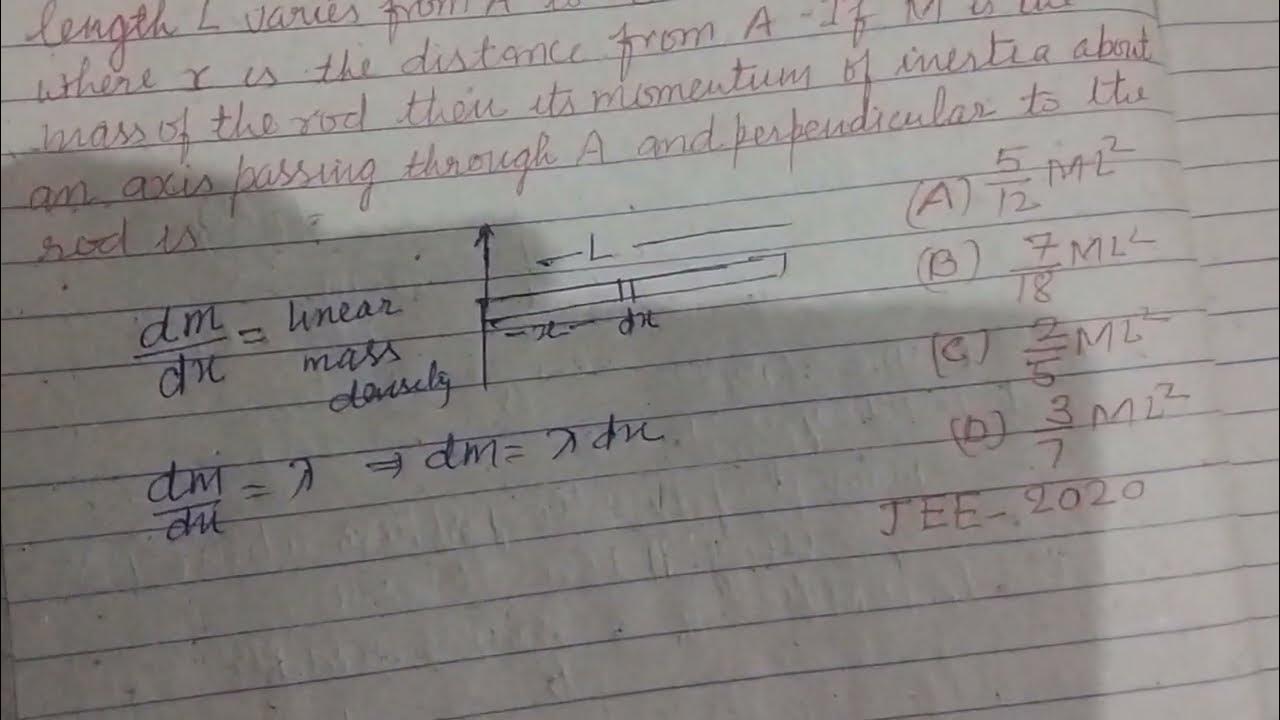 length L varies from A to
where x is the distance from A - If M is the
mass of the rod then its momentum of inertia about
an axis passing through A and perpendicular to the
rod is
(A) 5/12 ML²
(B) 7/18 ML²
(C) 2/5 ML²
(D) 3/7 ML²
JEE - 2020
L
x dx
dm/dx = linear
mass
densely
dm/dx = λ ⇒ dm = λ dx